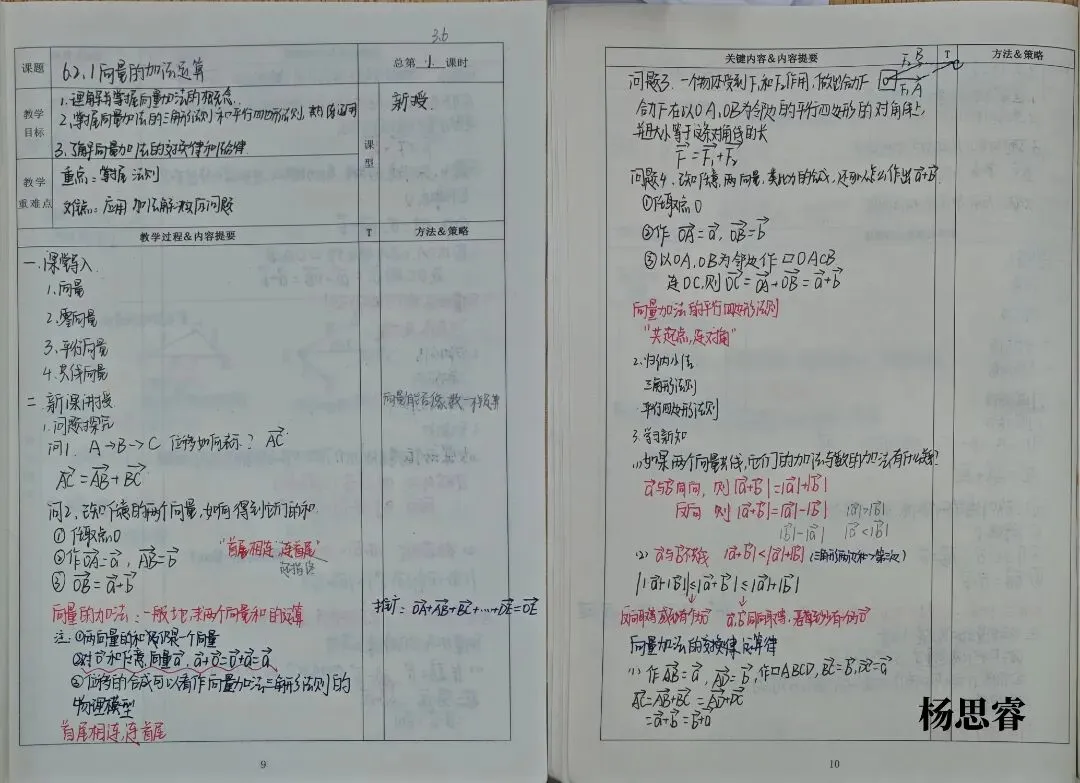 3.6
课题 6.2.1向量的加法运算 总第 1 课时
教学目标 1.理解并掌握向量加法的概念.
2.掌握向量加法的三角形法则和平行四边形法则,熟练运用
3.了解向量加法的交换律和结合律.
课型 新授.
教学重难点 重点:掌握法则
难点:应用加法解决实际问题
教学过程&内容提要 T 方法&策略
一.课堂导入.
1.向量
2.零向量
3.平行向量
4.共线向量
二 新课讲授
向量能否像数一样运算
1.问题探究
问1. A→B→C 位移如何表示? AC
AC=AB+BC
问2,已知任意的两个向量,如何得到它们的和.
① 任取点O
②作OA=a, AB=b
"首尾相连,连首尾"
③ OB=a+b
向量的加法:一般地,求两个向量和的运算
推广:OA+AB+BC+……+DE=OE
注:①两向量的和仍是一个向量
②对0和任意向量a,a+0=0+a=a
③位移的合成可以看作向量加法三角形法则的
物理模型
首尾相连,连首尾
9
关键内容&内容提要 T 方法&策略
F₂ B
C
F₁ A
问题3.一个物体受到F₁和F₂作用,做出合力F
合力F在以OA、OB为邻边的平行四边形的对角线上,
并且大小等于这条对角线的长
F=F₁+F₂
问题4.已知任意两向量,类比力的合成,还可以怎么作出a+b.
①任取点O
②作 OA=a, OB=b
③以OA,OB为邻边作▱OACB
连OC,则OC=OA+OB=a+b
向量加法的平行四边形法则
"共起点,连对角"
2.归纳小结
三角形法则
平行四边形法则
3.学习新知
(1)如果两个向量共线,它们的加法与数的加法有什么关系?
a与b同向,则|a+b|=|a|+|b|
反向 则|a+b|=|a|-|b| |a|>|b|
|b|-|a| |a|<|b|
(2) a与b不共线 |a+b|<|a|+|b|(三角形两边和>第三边)
||a|-|b||≤|a+b|≤|a|+|b|
a,b同向取等,
向量加法的交换律,运算律
(1)作AB=a,AD=b,作▱ABCD,BC=b,DC=a
AC=AB+BC=AD+DC
=a+b=b+a
杨思睿
10